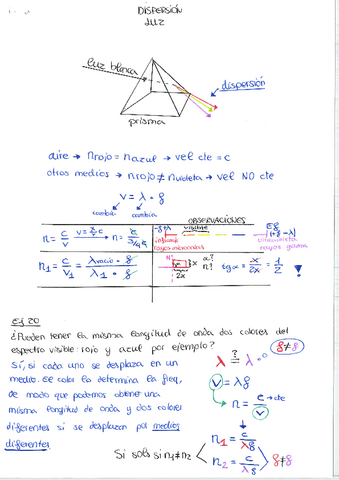 DISPERSIÓN
LUZ
luz blanca
dispersión
prisma
aire → n rojo = n azul → vel cte = c
otros medios → n rojo ≠ n violeta → vel NO cte
v = λ · f
cambia cambia
OBSERVACIONES
n = c/v
visible
infrarrojo
ultravioleta
rayos gamma
n₁ = c/v₁ = λvacío · f / λ₁ · f
tg α = x/2x = 1/2 !
Ej 20
¿Pueden tener la misma longitud de onda dos colores del
espectro visible: rojo y azul por ejemplo?
λ ?= λ f≠f
Sí, si cada uno se desplaza en un
medio. El color la determina la freq,
v = λf
de modo que podemos obtener una
n = c/v → cte
misma longitud de onda y dos colores
diferentes si se desplazan por medios
diferentes.
Si solo si n₁≠n₂
n₁ = c/λf
n₂ = c/λf
f≠f